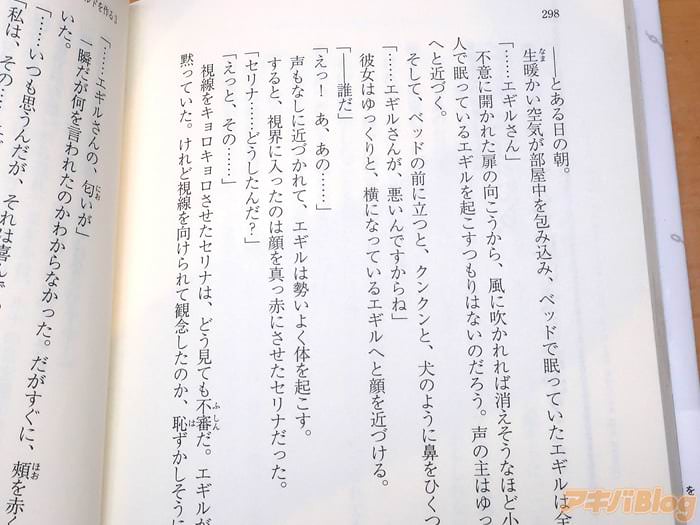 298
――とある日の朝。
生暖かい空気が部屋中を包み込み、ベッドで眠っていたエギルは全
なま
「……エギルさん」
不意に開かれた扉の向こうから、風に吹かれれば消えそうなほど小
人で眠っているエギルを起こすつもりはないのだろう。声の主はゆっ
へと近づく。
そして、ベッドの前に立つと、クンクンと、犬のように鼻をひくつ
「……エギルさんが、悪いんですからね」
彼女はゆっくりと、横になっているエギルへと顔を近づける。
「――誰だ」
「えっ！ あ、あの……」
声もなしに近づかれて、エギルは勢いよく体を起こす。
すると、視界に入ったのは顔を真っ赤にさせたセリナだった。
「セリナ……どうしたんだ？」
「えっと、その……」
視線をキョロキョロさせたセリナは、どう見ても不審だ。エギルが
ふしん
黙っていた。けれど視線を向けられて観念したのか、恥ずかしそうに
は
ルドを作る3
「……エギルさんの、匂いが」
にお
一瞬だが何を言われたのかわからなかった。だがすぐに、頬を赤く
ほお
いた。
「……いつも思うんだが、それは喜んで
「私は、その……
アキバBlog